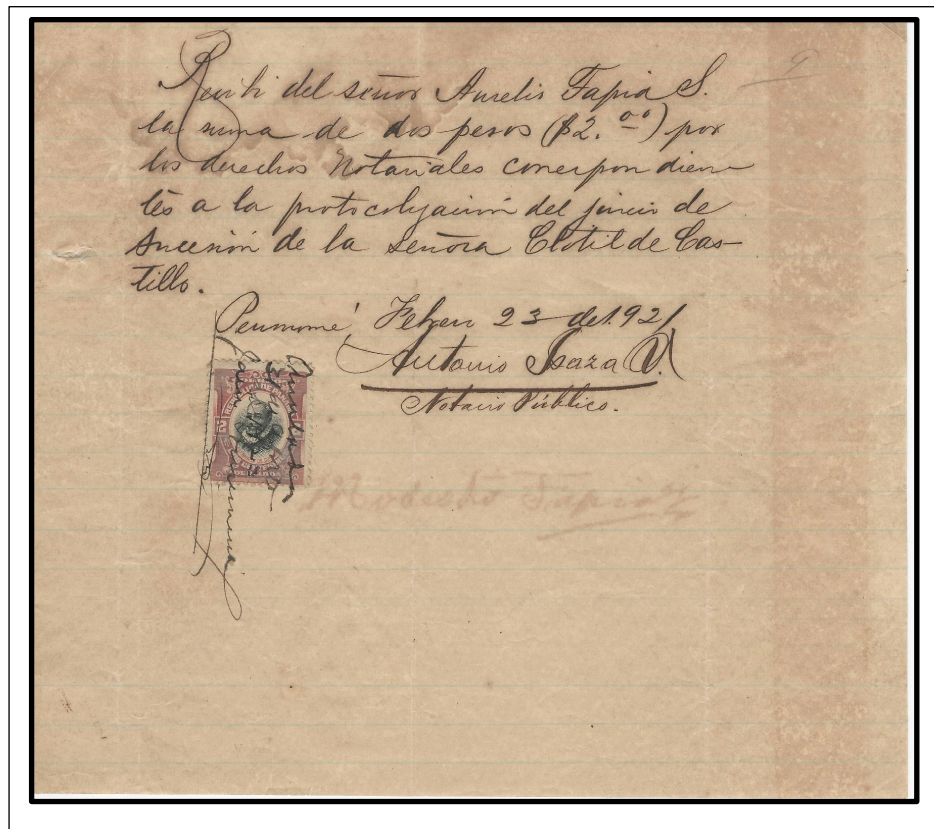 Recibi del señor Aurelio Tapia S.
la suma de dos pesos ($2.00) por
los derechos Notariales correspondien-
tes a la protocolización del juicio de
sucesión de la señora Clotilde Cas-
tillo.
Penonomé, Febrero 23 de 1.921
Antonio Isaza V.
Notario Público.
Anulada
Modesto Tapia
9